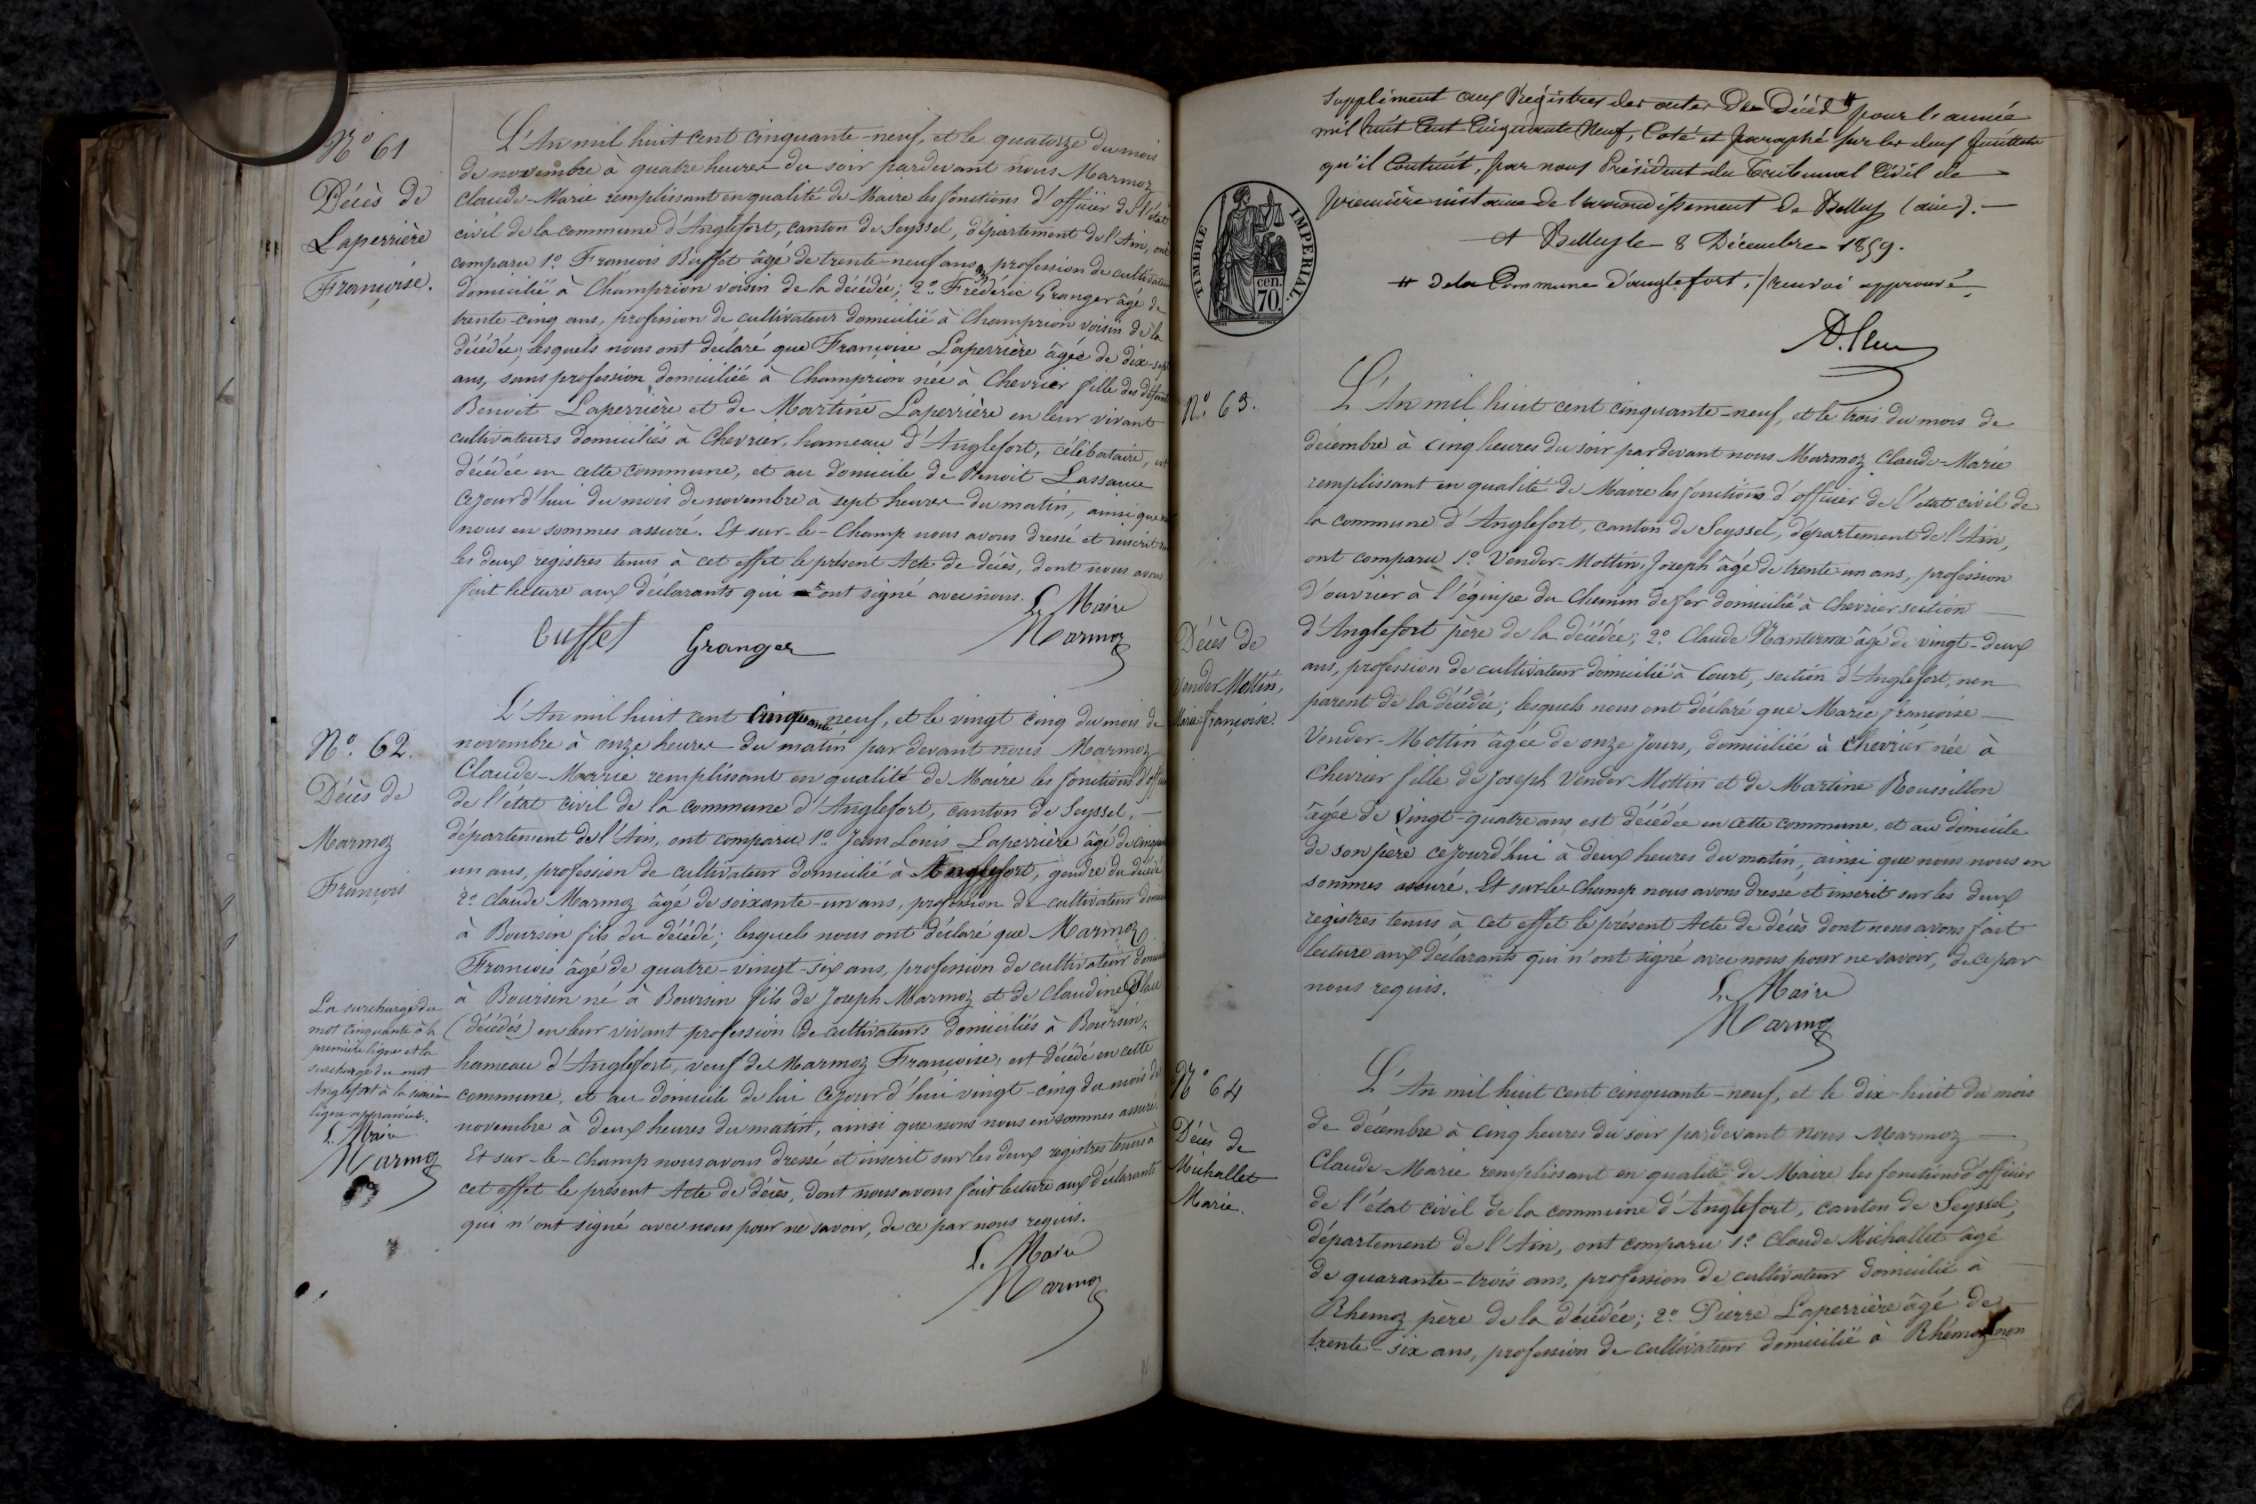 N° 61
Décès de
Laperrière
Françoise.
L'An mil huit cent cinquante-neuf, et le quatorze du mois
de novembre à quatre heures du soir pardevant nous Marmoz
Claude-Marie remplissant en qualité de Maire les fonctions d'officier de l'état
civil de la commune d'Anglefort, canton de Seyssel, département de l'Ain, ont
comparu 1° François Buffet âgé de trente-neuf ans, profession de cultivateur
domicilié à Champrion voisin de la décédée; 2° Frédéric Granger âgé de
trente-cinq ans, profession de cultivateur domicilié à Champrion voisin de la
décédée; lesquels nous ont déclaré que Françoise Laperrière âgée de dix-sept
ans, sans profession domiciliée à Champrion née à Chevrier fille des défunts
Benoit Laperrière et de Martine Laperrière en leur vivant
cultivateurs domiciliés à Chevrier, hameau d'Anglefort, célibataire, est
décédée en cette commune, et au domicile de Benoit
cejourd'hui du mois de novembre à sept heures du matin, ainsi que
nous en sommes assuré. Et sur-le-champ nous avons dressé et inscrit sur
les deux registres tenus à cet effet le présent Acte de décès, dont nous avons
fait lecture aux déclarants qui ont signé avec nous.
Le Maire
Buffet Granger Marmoz
N°. 62.
Décès de
Marmoz
François
L'An mil huit cent cinquante neuf, et le vingt cinq du mois de
novembre à onze heures du matin par devant nous Marmoz
Claude-Marie remplissant en qualité de Maire les fonctions d'officier
de l'état civil de la commune d'Anglefort, canton de Seyssel,
département de l'Ain, ont comparu 1° Jean Louis Laperrière âgé de cinquante
un ans, profession de cultivateur domicilié à Anglefort, gendre du décédé
2° Claude Marmoz âgé de soixante-un ans, profession de cultivateur domicilié
à Boursin fils du décédé; lesquels nous ont déclaré que Marmoz
François âgé de quatre-vingt-six ans, profession de cultivateur domicilié
à Boursin né à Boursin fils de Joseph Marmoz et de Claudine
(décédés) en leur vivant profession de cultivateurs domiciliés à Boursin,
hameau d'Anglefort, veuf de Marmoz Françoise, est décédé en cette
commune, et au domicile de lui cejourd'hui vingt-cinq du mois de
novembre à deux heures du matin, ainsi que nous nous en sommes assuré.
Et sur-le-champ nous avons dressé et inscrit sur les deux registres tenus à
cet effet le présent Acte de décès, dont nous avons fait lecture aux déclarants
qui n'ont signé avec nous pour ne savoir, de ce par nous requis.
Le Maire
Marmoz
La surcharge du
mot cinquante à la
première ligne et la
surcharge du mot
Anglefort à la sixième
ligne approuvées.
Le Maire
Marmoz
Supplément aux Registres des actes De Décès # pour l'année
mil huit Cent Cinquante Neuf, Coté et paraphé sur les deux feuillets
qu'il Contient, par nous Président du Tribunal Civil de
première instance de l'arrondissement de Belley (ain).
A Belley le 8 Décembre 1859.
# de la Commune d'anglefort. / renvoi approuvé
TIMBRE IMPERIAL.
70 cen.
N°. 63.
Décès de
Vender Mottin,
Marie françoise.
L'An mil huit cent cinquante-neuf, et le trois du mois de
décembre à cinq heures du soir pardevant nous Marmoz Claude-Marie
remplissant en qualité de Maire les fonctions d'officier de l'état civil de
la commune d'Anglefort, canton de Seyssel, département de l'Ain,
ont comparu 1° Vender-Mottin, Joseph âgé de trente un ans, profession
d'ouvrier à l'équipe du Chemin de fer domicilié à Chevrier section
d'Anglefort père de la décédée; 2° Claude âgé de vingt-deux
ans, profession de cultivateur domicilié à Court, section d'Anglefort, non
parent de la décédée; lesquels nous ont déclaré que Marie françoise
Vender-Mottin âgée de onze jours, domiciliée à Chevrier née à
Chevrier fille de Joseph Vender Mottin et de Martine Roussillon
âgée de vingt-quatre ans est décédée en cette commune, et au domicile
de son père cejourd'hui à deux heures du matin, ainsi que nous nous en
sommes assuré. Et sur le Champ nous avons dressé et inscrit sur les deux
registres tenus à cet effet le présent Acte de décès dont nous avons fait
lecture aux déclarants qui n'ont signé avec nous pour ne savoir, de ce par
nous requis.
Le Maire
Marmoz
N° 64
Décès de
Michallet
Marie.
L'An mil huit cent cinquante-neuf, et le dix-huit du mois
de décembre à cinq heures du soir pardevant nous Marmoz
Claude-Marie remplissant en qualité de Maire les fonctions d'officier
de l'état civil de la commune d'Anglefort, canton de Seyssel,
département de l'Ain, ont comparu 1° Claude Michallet âgé
de quarante-trois ans, profession de cultivateur domicilié à
Rhemoz père de la décédée; 2° Pierre Laperrière âgé de
trente-six ans, profession de cultivateur domicilié à Rhémoz non